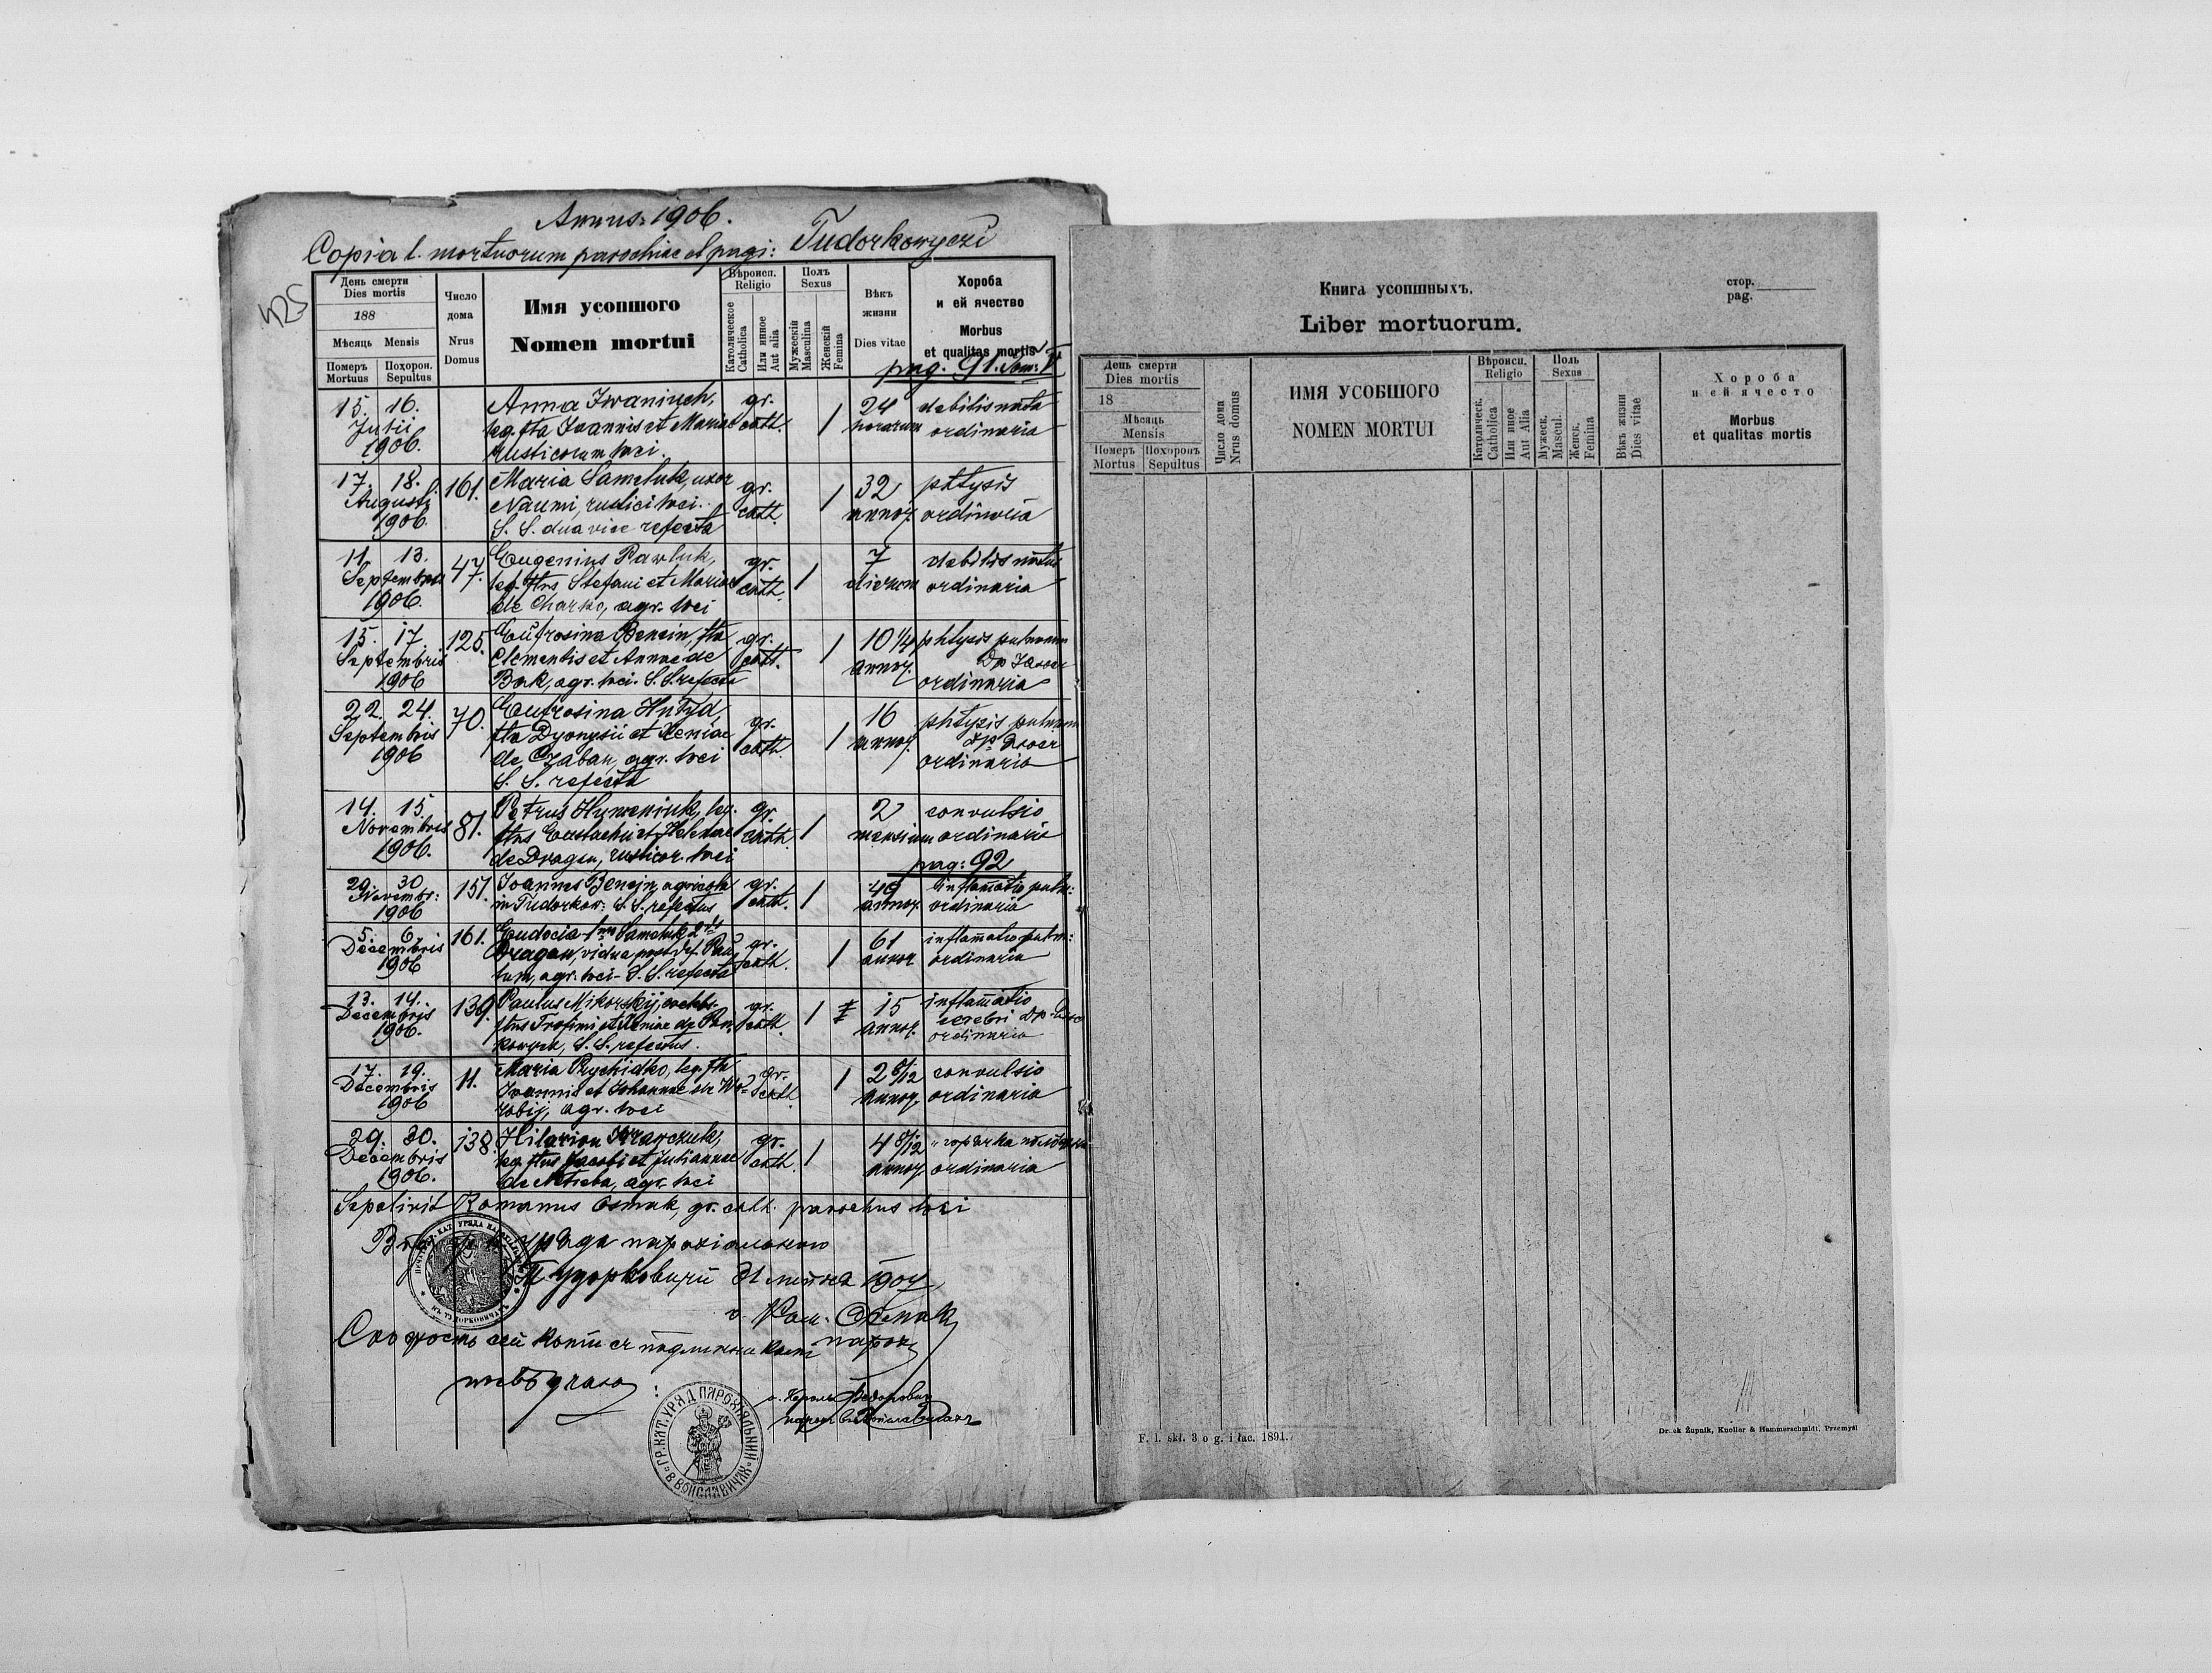 Annus 1906.
Copia l. mortuorum parochiae et pagi: Tudorkowyczi
425
День смерти
Dies mortis
188
Мѣсяць Mensis
Померъ Mortuus
Похорон. Sepultus
Число дома
Nrus Domus
Имя усопшого
Nomen mortui
Вѣроисп.
Religio
Католическое Catholica
Или инное Aut alia
Полъ
Sexus
Мужескій Masculina
Женскій Femina
Вѣкъ жизни
Dies vitae
Хороба
и ей ячество
Morbus
et qualitas mortis
pag. 91. Tom: V
15. 16. Anna Iwaniuch, gr. 1 24 debilis nata
Julii leg. fta Joannis et Mariae cath. horarum ordinaria
1906. rusticorum loci.
17. 18. 161. Maria Samcluk, uxor gr. 1 32 phtysis
Augusti Naumi, rustici loci. cath. annor. ordinaria
1906. S. S. dua vice refecta
11. 13. 47. Eugenius Pawluk, gr. 1 7 debilis natus
Septembris leg. ftus Stefani et Mariae cath. dierum ordinaria
1906. de Charko, agr. loci
15. 17. 125. Eufrosina Bencin, fta gr. 1 10 1/4 phtysis pulmonum
Septembris Clementis et Annae de cath. annor.
1906 Bak, agr. loci. S. S. refecta ordinaria
22. 24. 70. Eufrosina Hnizd, gr. 1 16 phtysis pulmonum
Septembris fta Dyonysii et Xeniae cath. annor.
1906 de Czaban, agr. loci ordinaria
S. S. refecta
14. 15. 81. Petrus Humeniuk, leg. gr. 1 2 convulsio
Novembris ftus Eustachii et Helenae cath. mensium ordinaria
1906. de Dragan, rusticor. loci
pag: 92
29. 30. 151. Joannes Bencin, agricola gr. 1 49 inflamatio pulm:
Novembr: in Tudorkow: S. S. refectus cath. annor. ordinaria
1906
5. 6. 161. Eudocia 1mo Samcluk 2do gr. 1 61 inflamatio pulm:
Decembris Dragan, vidua post def. Pau- cath. annor. ordinaria
1906 lum, agr. loci - S. S. refecta
13. 14. 139. Paulus Mikorskij, gr. 1 15 inflamatio
Decembris ftus Trofimi et Xeniae de cath. annor. cerebri
1906. S. S. refectus. ordinaria
17. 19. 11. Maria Prychidko, leg. fta gr. 1 2 5/12 convulsio
Decembris Joannis et Johannae de Wo- cath. annor. ordinaria
1906 robij, agr. loci
29. 30. 138. Hilarion Krawczuk, gr. 1 4 8/12 „горячка
Decembris leg. ftus Jacobi et Juliannae cath. annor. ordinaria
1906. de Netreba, agr. loci
Sepelivit Romanus Osmak, gr. cath. parochus loci
уряда парохіального
Тудорковичи 31 1907
о. Ром. Осмак
парох
Сходность сей копіи съ
ствѣрджаю:
ГР. КАТ. УРЯД ПАРОХІЯЛЬНИЙ В ВОИСЛАВИЧАХ
Книга усопшныхъ.
Liber mortuorum.
стор.
pag.
День смерти
Dies mortis
18
Мѣсяць
Mensis
Померъ Mortus
Похоронъ Sepultus
Число дома
Nrus domus
ИМЯ УСОБШОГО
NOMEN MORTUI
Вѣроисп.
Religio
Католическ. Catholica
Или иное Aut Alia
Поль
Sexus
Мужеск. Mascul.
Женск. Femina
Вѣкъ жизни
Dies vitae
Хороба
и ей ячесто
Morbus
et qualitas mortis
F. l. skł. 3 o g. i łac. 1891.
Druck Żupnik, Knoller & Hammerschmidt, Przemyśl